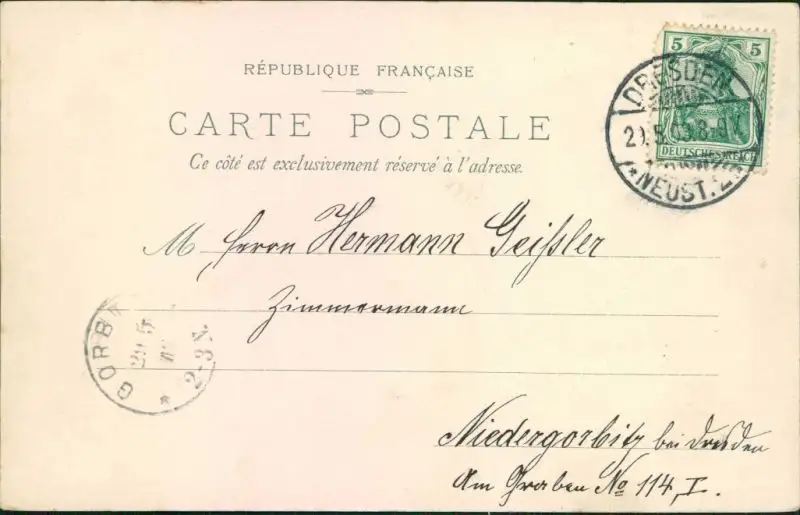 RÉPUBLIQUE FRANÇAISE
CARTE POSTALE
Ce côté est exclusivement réservé à l'adresse.
5 5
DEUTSCHES REICH
DRESDEN
8-9 V
NEUST.
M Herrn Hermann Geißler
Zimmermann
GORB
29 5
2-3 N.
Niedergorbitz bei Dresden
Am Graben No 114, I.